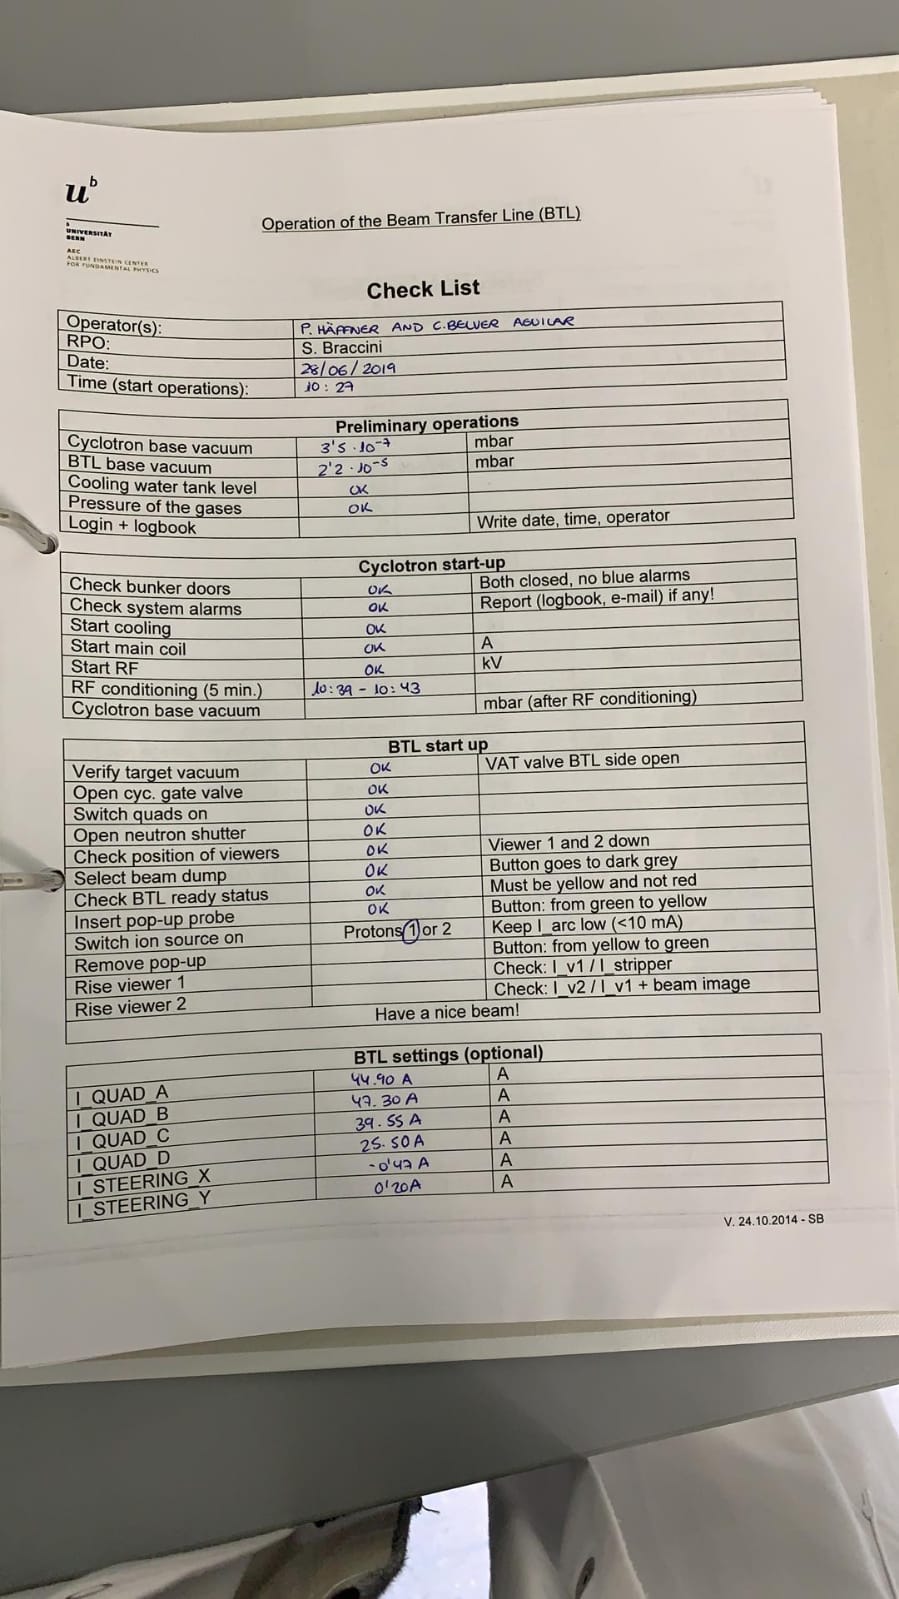 u^b
b
UNIVERSITÄT
BERN
AEC
ALBERT EINSTEIN CENTER
FOR FUNDAMENTAL PHYSICS
Operation of the Beam Transfer Line (BTL)
Check List
Operator(s): P. HÄFFNER AND C. BELVER AGUILAR
RPO: S. Braccini
Date: 28/06/2019
Time (start operations): 10:27
Preliminary operations
Cyclotron base vacuum 3'5 · 10⁻⁷ mbar
BTL base vacuum 2'2 · 10⁻⁵ mbar
Cooling water tank level OK
Pressure of the gases OK
Login + logbook Write date, time, operator
Cyclotron start-up
Check bunker doors OK Both closed, no blue alarms
Check system alarms OK Report (logbook, e-mail) if any!
Start cooling OK
Start main coil OK A
Start RF OK kV
RF conditioning (5 min.) 10:39 - 10:43
Cyclotron base vacuum mbar (after RF conditioning)
BTL start up
Verify target vacuum OK VAT valve BTL side open
Open cyc. gate valve OK
Switch quads on OK
Open neutron shutter OK
Check position of viewers OK Viewer 1 and 2 down
Select beam dump OK Button goes to dark grey
Check BTL ready status OK Must be yellow and not red
Insert pop-up probe OK Button: from green to yellow
Switch ion source on Protons 1 or 2 Keep I_arc low (<10 mA)
Remove pop-up Button: from yellow to green
Rise viewer 1 Check: I_v1 / I_stripper
Rise viewer 2 Check: I_v2 / I_v1 + beam image
Have a nice beam!
BTL settings (optional)
I_QUAD_A 44.90 A A
I_QUAD_B 47.30 A A
I_QUAD_C 39.55 A A
I_QUAD_D 25.50 A A
I_STEERING_X -0'47 A A
I_STEERING_Y 0'20 A A
V. 24.10.2014 - SB